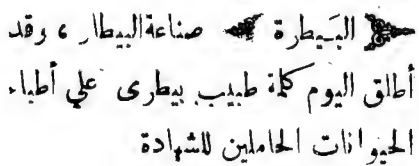 البَيطرة صناعة البيطار ، وقد
أطلق اليوم كلمة طبيب بيطرى علي أطباء
الحيوانات الحاملين للشهادة